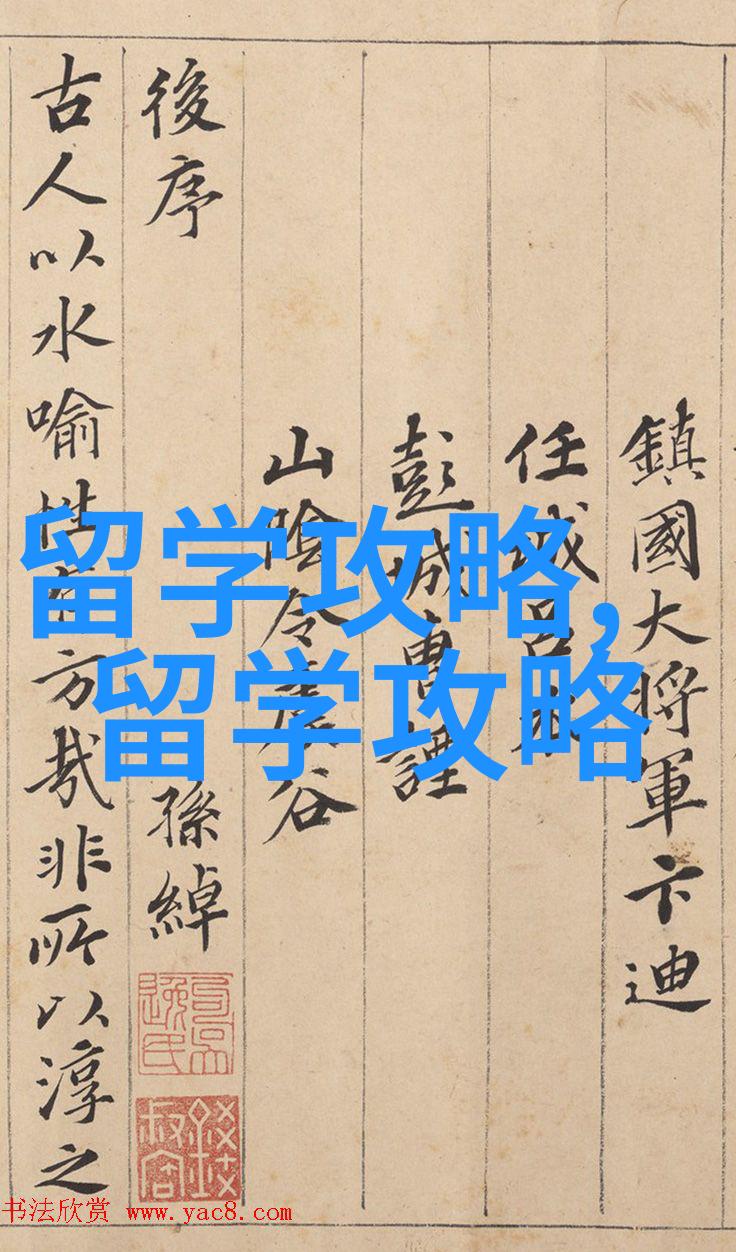 鎮國大将軍卞迪
任城呂
彭城曹諲
山陰令虞谷
後序
孫綽
古人以水喻性有方哉非所以淳之
留学攻略,
留学攻略
书法欣赏 www.yac8.com